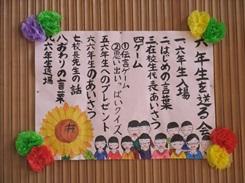 六年生を送る会
一六年生入場
二はじめの言葉
三在校生代表あいさつ
四ゲーム
①伝言ゲーム
②思い出いっぱいクイズ
五六年生へのプレゼント
六六年生のあいさつ
七校長先生の話
八おわりの言葉
九六年生退場